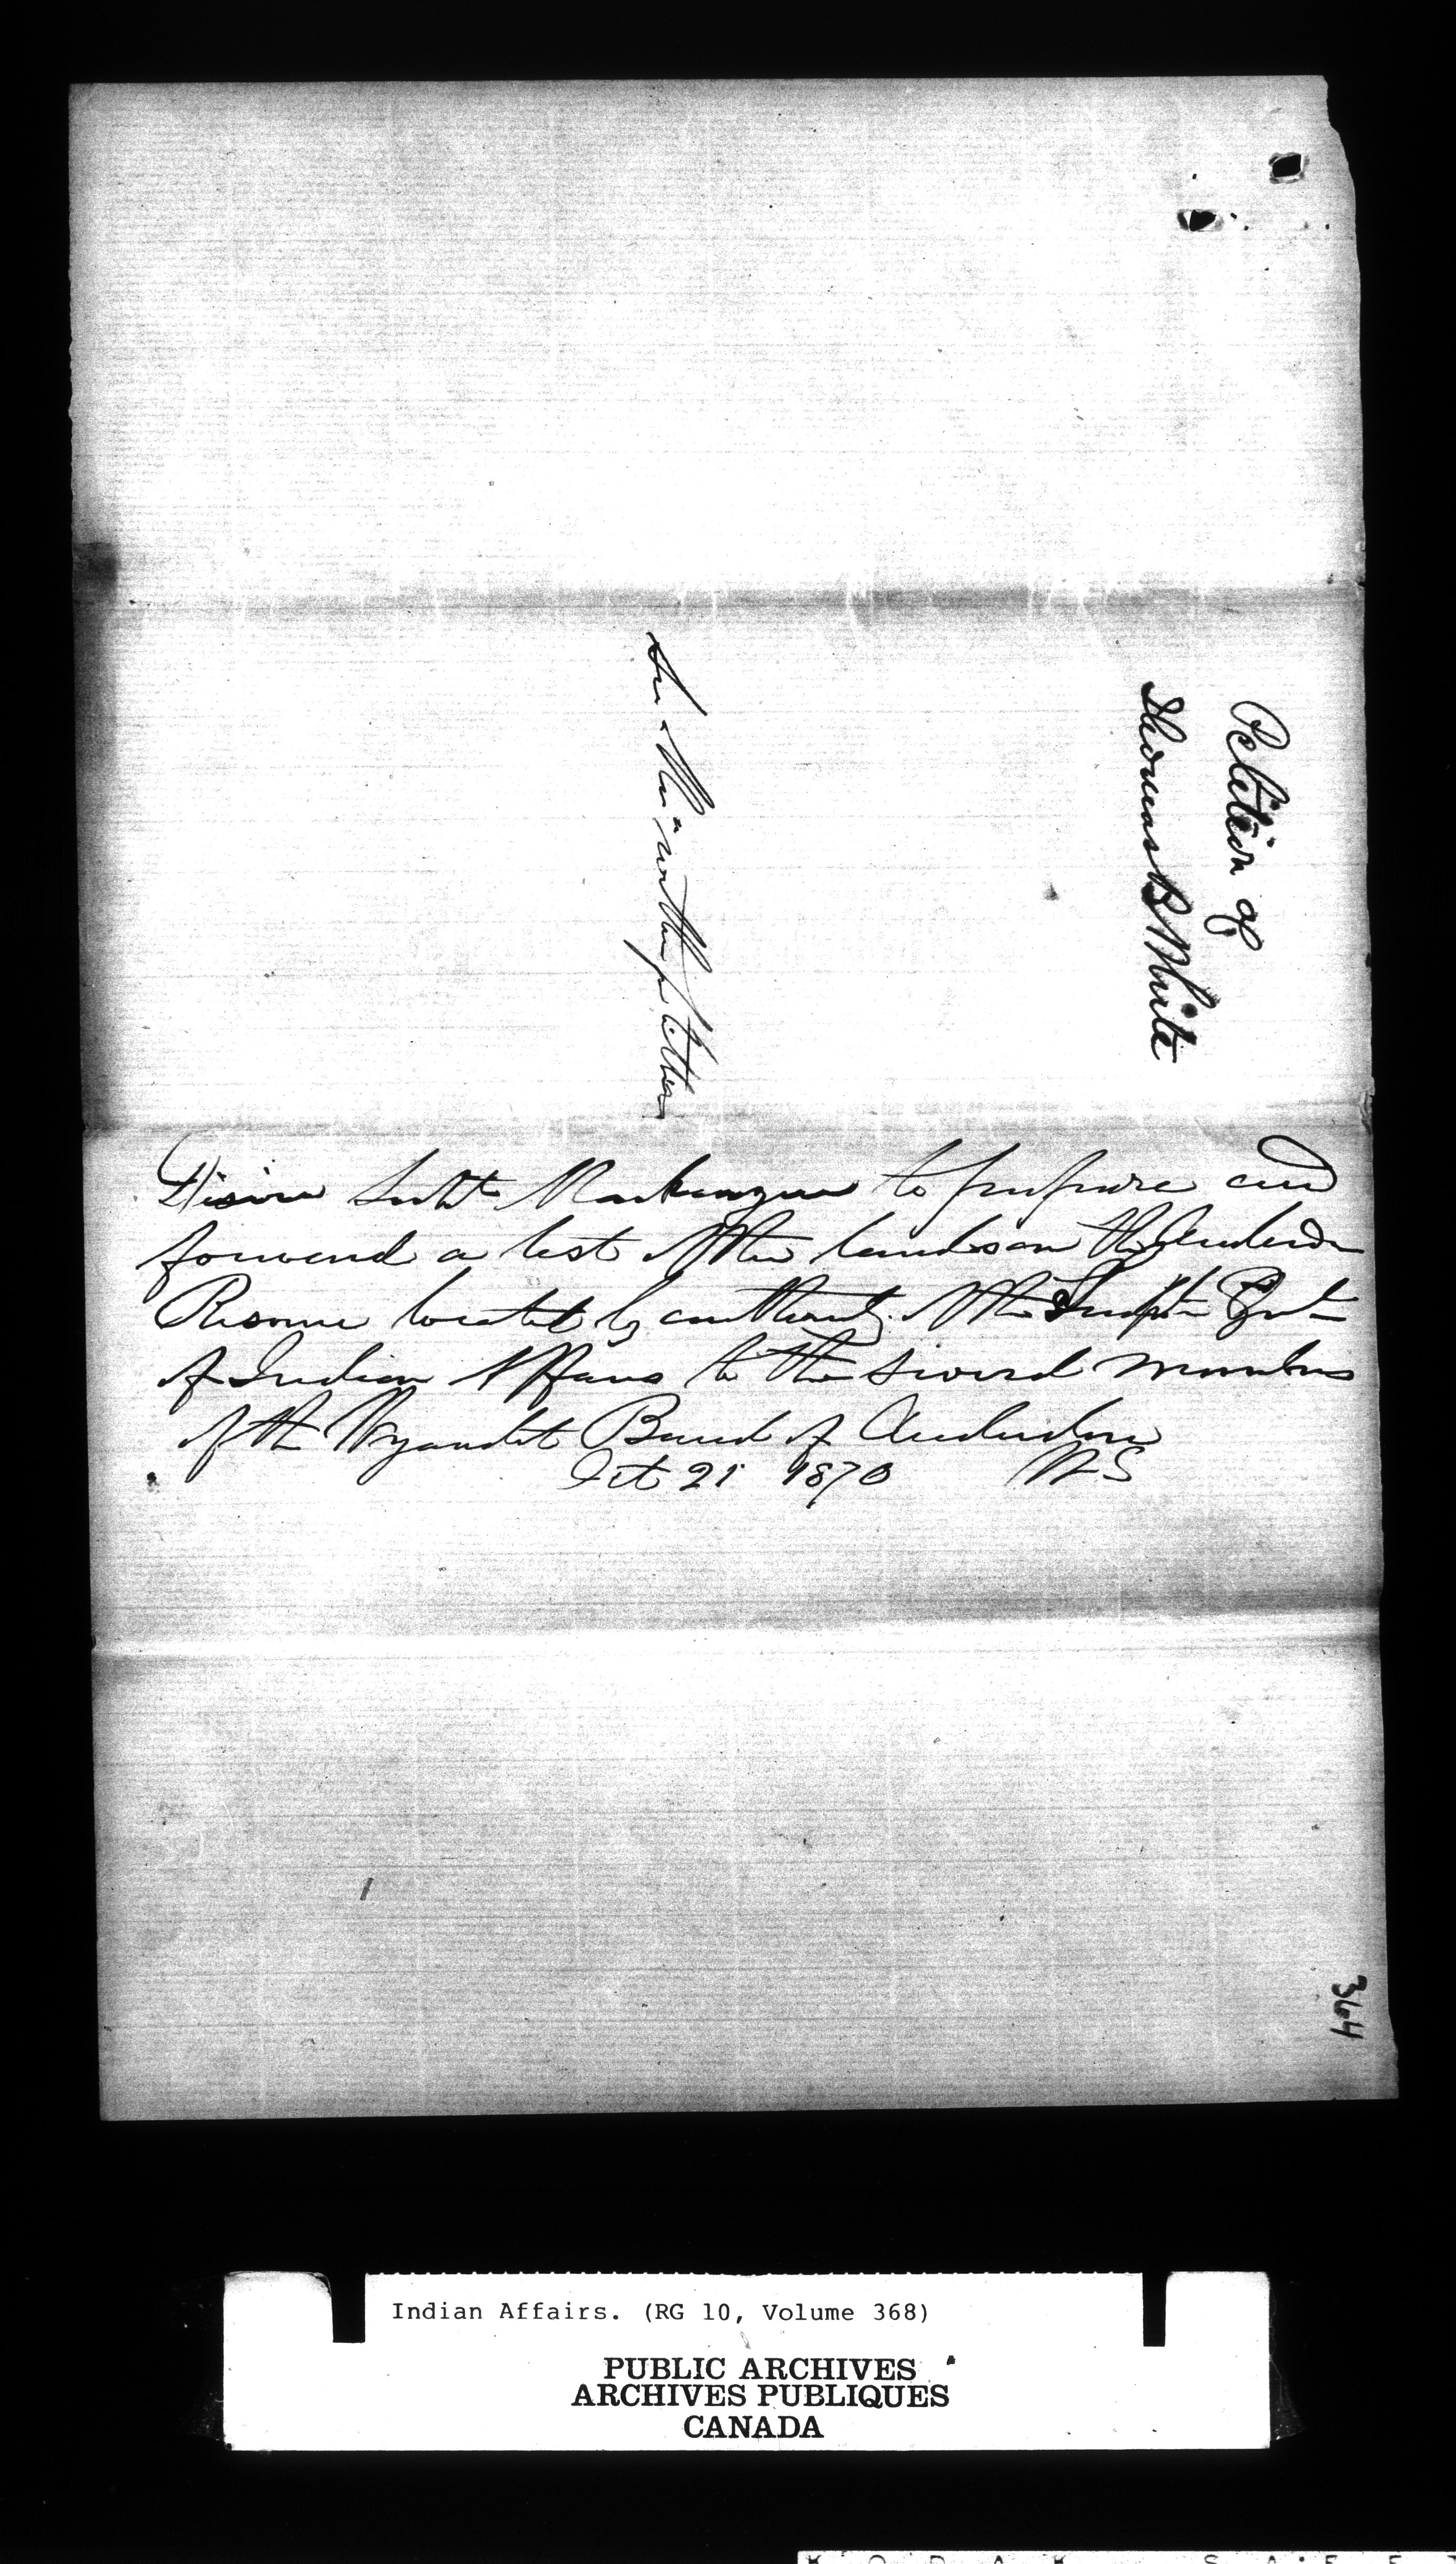 Petition of
Thomas B White
See this with petition
Desire Supt Mackenzie to prepare and
forward a list of the lands on the Anderdon
Reserve located by authority of the Supt Genl
of Indian Affairs to the several members
of the Wyandot Band of Anderdon
Oct 21 1870 WS
364
Indian Affairs. (RG 10, Volume 368)
PUBLIC ARCHIVES
ARCHIVES PUBLIQUES
CANADA